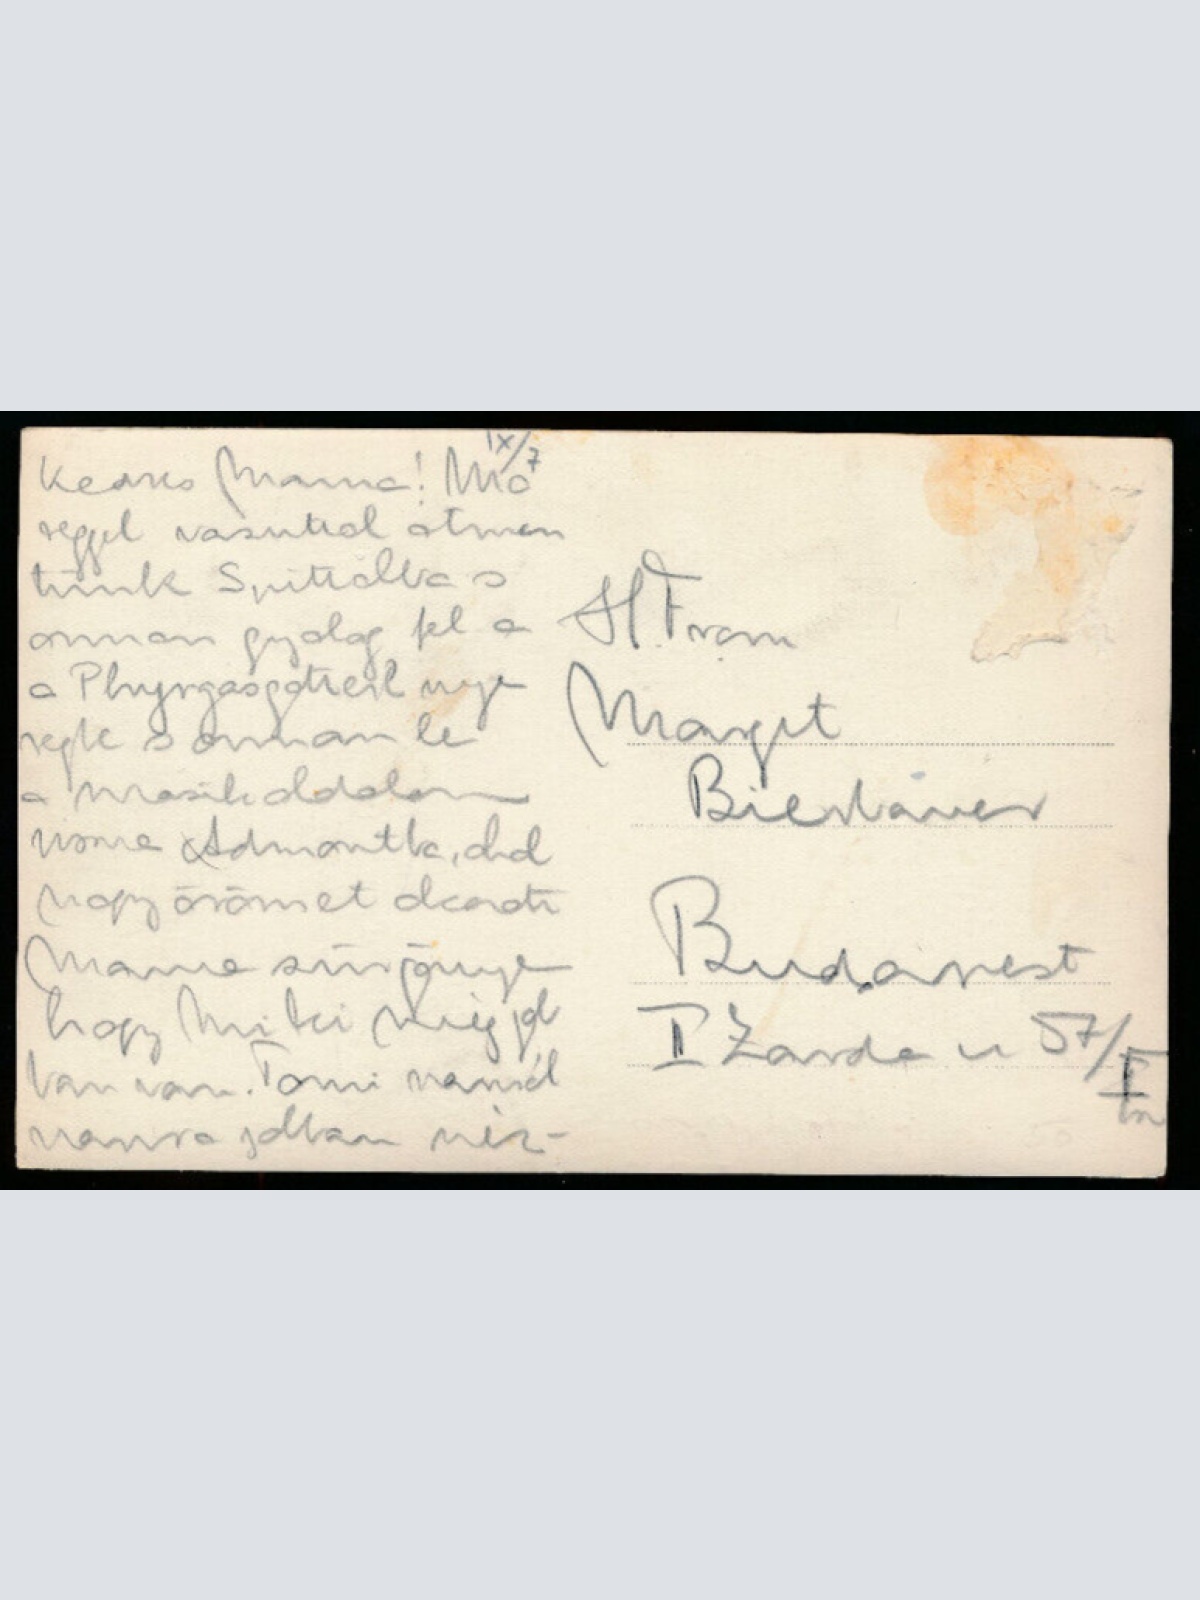 IX/7
Kedves Mama! Ma
reggel vasuttal átmen
tünk Spitálba s
onnan gyalog fel a
a Phyrgasgatterl nye
regbe s onnan le
a másik oldalon
Admontba, ahol
nagy örömet okozott
Mama sürgönye
hogy Miki még jól
van. Tomi napról
napra jobban néz-
H. Fram
Margit
Bierbauer
Budapest
II Zárda u 57/I